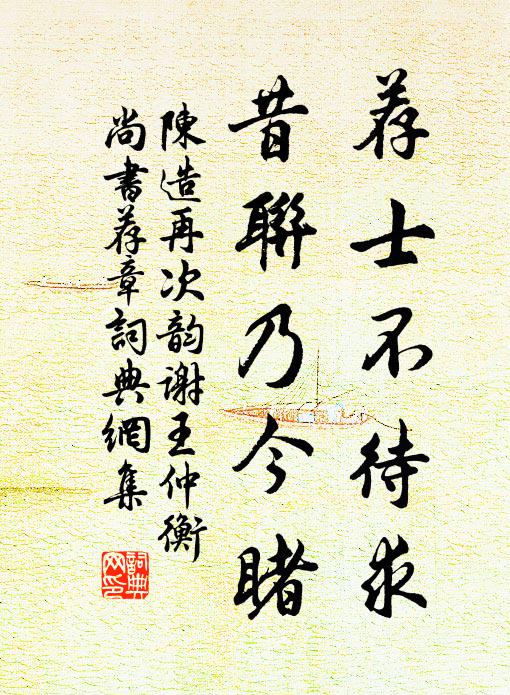 荐士不待求
昔聯乃今睹
陳造再次韵谢王仲衡
尚書荐章詞典網集
詞典
网印